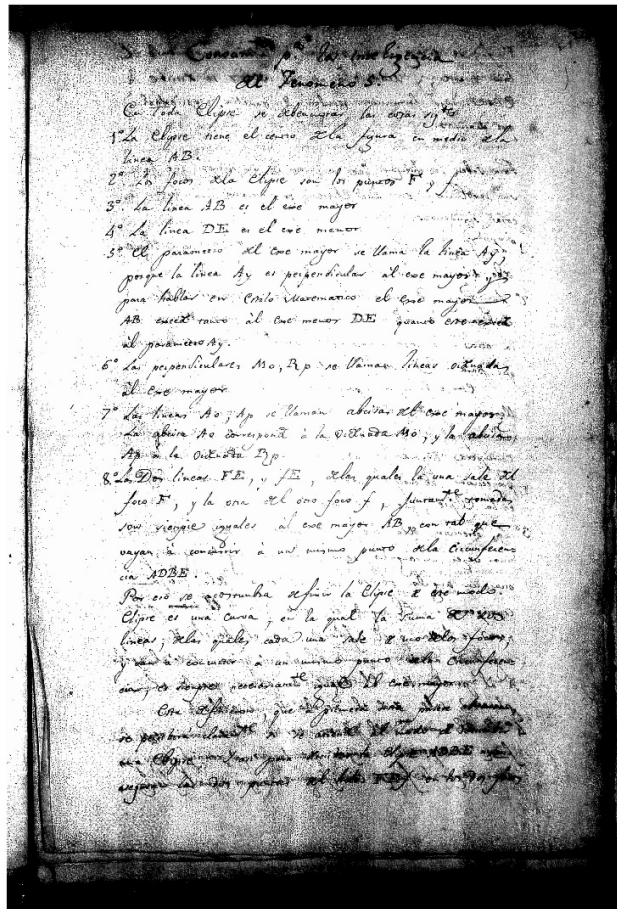 p.ª la inteligencia
del Fenomeno 5.
En toda Elipse se deben las cosas sig.tes
1º La Elipse tiene el centro de la figura en medio de la
linea AB.
2º Los focos de la Elipse son los puntos F, y f.
3º La linea AB es el exe mayor
4º La linea DE es el exe menor
5º El parametro del exe mayor se llama la linea Ay,
porque la linea Ay es perpendicular al exe mayor; y
para hablar en estilo Matematico el exe mayor
AB excede tanto àl exe menor DE quanto este excede
àl parametro Ay.
6º Las perpendiculares Mo, Rp se llaman lineas ordenadas
àl exe mayor
7º Las lineas Ao, Ap se llaman abcisas del exe mayor;
La abcisa Ao corresponde à la Ordenada Mo, y la abcisa
Ap à la Ordenada Rp.
8º Las Dos lineas FE, y fE, de las quales la una sale del
foco F, y la otra del otro foco f, juntam.te tomadas
son siempre iguales àl exe mayor AB, con tal que
vayan à concurrir à un mismo punto de la circunferen
cia ADBE.
Por eso se acostumbra definir la Elipse de este modo.
Elipse es una curva, en la qual la suma de dos
lineas, de las quales cada una sale de uno de los focos,
y van à concurrir à un mismo punto de la Circunferen
cia, es siempre necesariam.te igual àl exe mayor.
Esta definicion, que